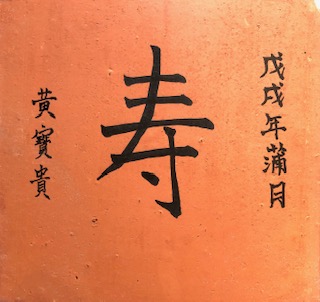 戊戌年蒲月
寿
黄寶貴